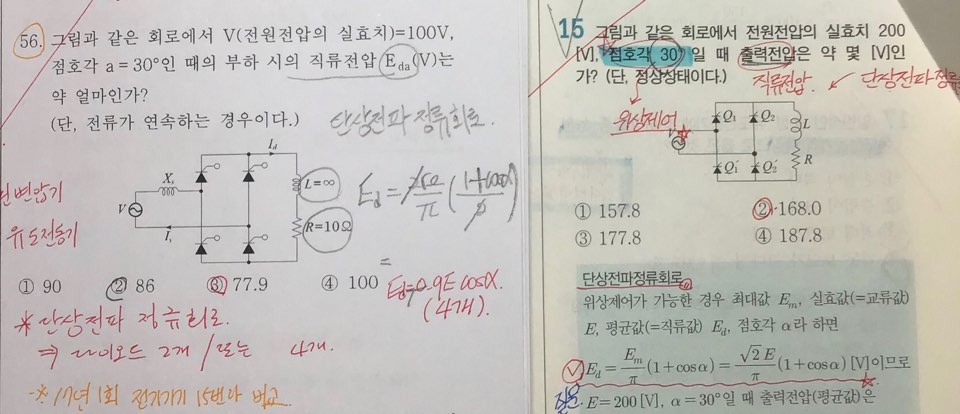 56. 그림과 같은 회로에서 V(전원전압의 실효치)=100V,
점호각 a=30°인 때의 부하 시의 직류전압 Eda(V)는
약 얼마인가?
(단, 전류가 연속하는 경우이다.)
단상전파 정류회로.
Id
Xs
V
Is
L=∞
R=10Ω
Ed = 2√2/π (1+cosα/2)
=
단변압기
유도전동기
① 90 ② 86 ③ 77.9 ④ 100
Ed=0.9E cosα.
(4개).
* 단상전파 정류회로.
⇒ 다이오드 2개 / 또는 4개.
※ 17년 1회 전기기기 15번과 비교
15 그림과 같은 회로에서 전원전압의 실효치 200
[V], 점호각 30°일 때 출력전압은 약 몇 [V]인
가? (단, 정상상태이다.)
직류전압. 단상전파정류
위상제어
Q1 Q2
L
V
R
Q1′ Q2′
① 157.8 ② 168.0
③ 177.8 ④ 187.8
단상전파정류회로
위상제어가 가능한 경우 최대값 Em, 실효값(=교류값)
E, 평균값(=직류값) Ed, 점호각 α라 하면
Ed = Em/π (1+cosα) = √2E/π (1+cosα) [V]이므로
E=200[V], α=30°일 때 출력전압(평균값)은